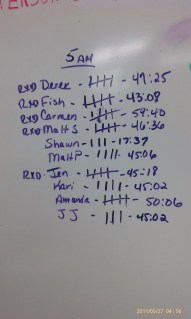 5 AM
RXD Derek - 𝍸 - 47:25
RXD Fish - 𝍸 - 43:08
RXD Carmen - 𝍸 - 59:40
RXD Matt S - 𝍸 - 46:36
Shawn - III - 17:37
Matt P - IIII - 45:06
RXD - Jen - 𝍸 - 45:18
Kari - IIII - 45:02
Amanda - 𝍸 - 50:06
JJ - III - 45:02
2011/05/27 04:16